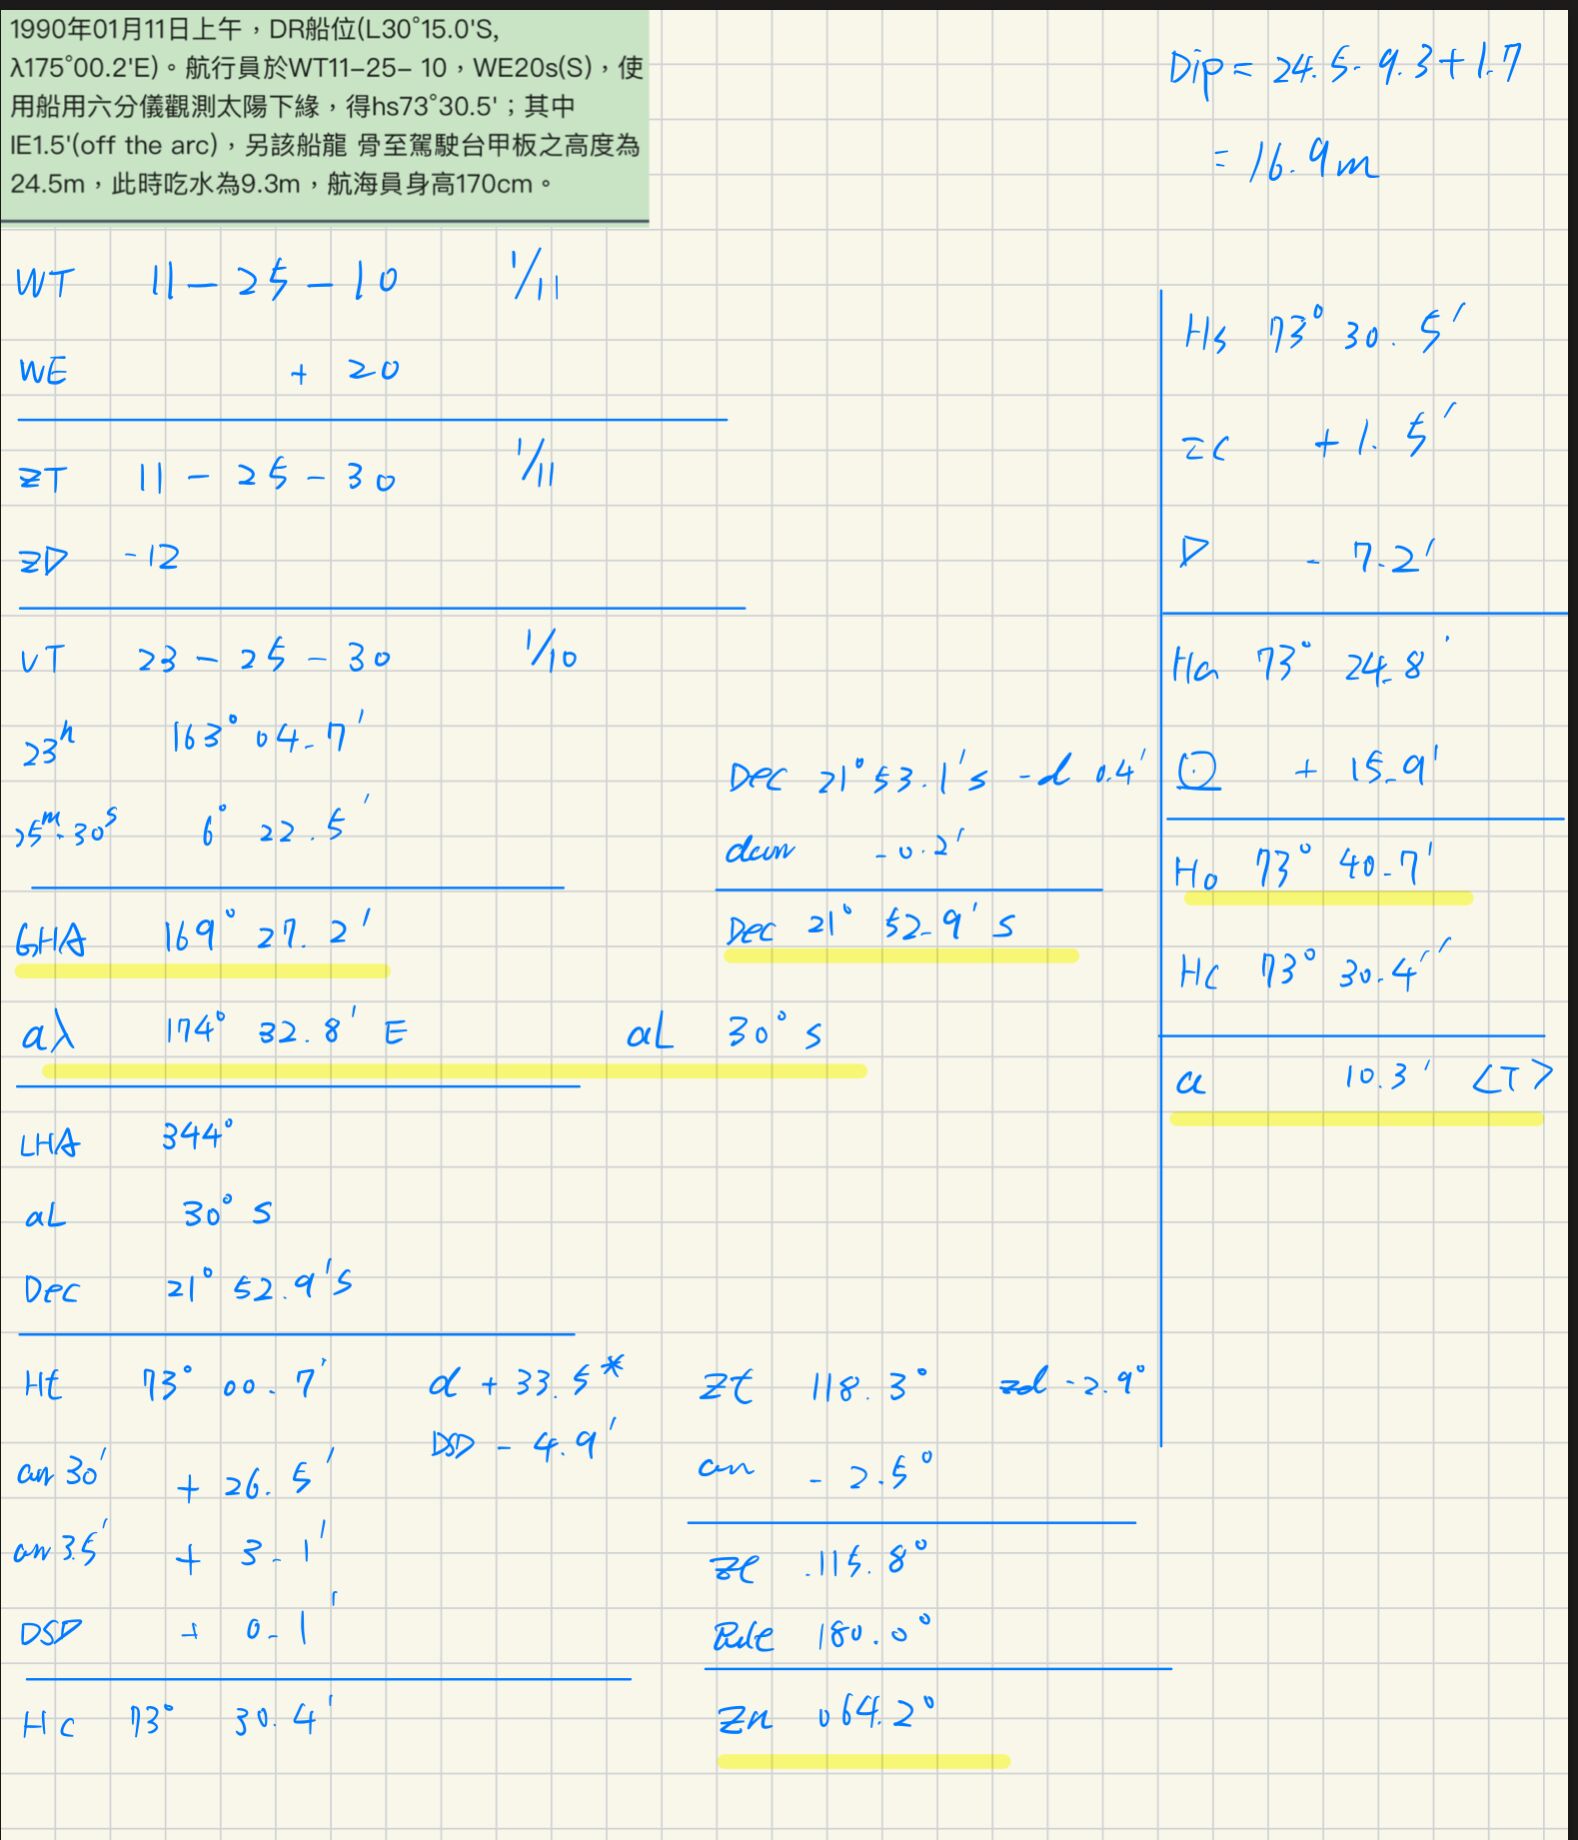 1990年01月11日上午，DR船位(L30°15.0'S,
λ175°00.2'E)。航行員於WT11-25- 10，WE20s(S)，使
用船用六分儀觀測太陽下緣，得hs73°30.5'；其中
IE1.5'(off the arc)，另該船龍 骨至駕駛台甲板之高度為
24.5m，此時吃水為9.3m，航海員身高170cm。
Dip = 24.5 - 9.3 + 1.7
= 16.9m
WT 11 - 25 - 10 1/11
WE + 20
ZT 11 - 25 - 30 1/11
ZD -12
UT 23 - 25 - 30 1/10
23h 163° 04.7'
25m-30s 6° 22.5'
GHA 169° 27.2'
aλ 174° 32.8' E aL 30° S
LHA 344°
aL 30° S
Dec 21° 52.9' S
Ht 73° 00.7' d + 33.5* 
DSD - 4.9'
an 30' + 26.5'
an 3.5' + 3.1'
DSD + 0.1'
Hc 73° 30.4'
Dec 21° 53.1' S -d 0.4'
dcorr -0.2'
Dec 21° 52.9' S
Zt 118.3° zd -2.9°
an - 2.5°
115.8°
Rule 180.0°
Zn 064.2°
Hs 73° 30.5'
IC + 1.5'
D - 7.2'
Ha 73° 24.8'
☉ + 15.9'
Ho 73° 40.7'
Hc 73° 30.4'
a 10.3' <T>